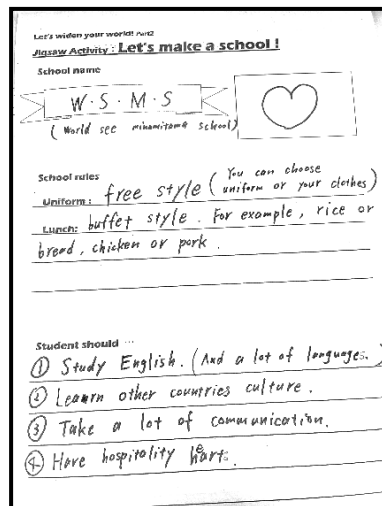 Let's widen your world! Part2
Jigsaw Activity : Let's make a school !
School name
W・S・M・S
( World see minamitama school)
School rules
Uniform : free style ( You can choose uniform or your clothes)
Lunch: buffet style. For example, rice or
bread, chicken or pork.
Student should …
① Study English. (And a lot of languages.)
② Learn other countries culture.
③ Take a lot of communication.
④ Have hospitality hearts.